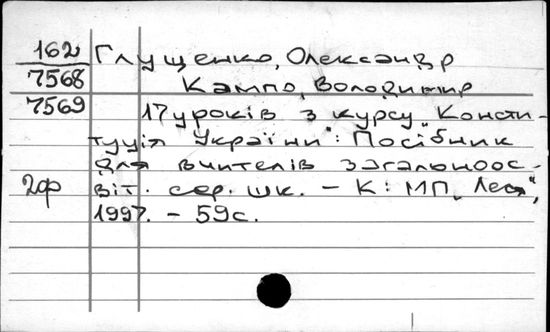 162 Глущенко, Олександр
7568 Кампо, Володимир
7569 17 уроків з курсу „Консти-
туція України": Посібник
для вчителів загальноос-
2ф віт. сер. шк. – К: МП „Леся",
1997. – 59с.